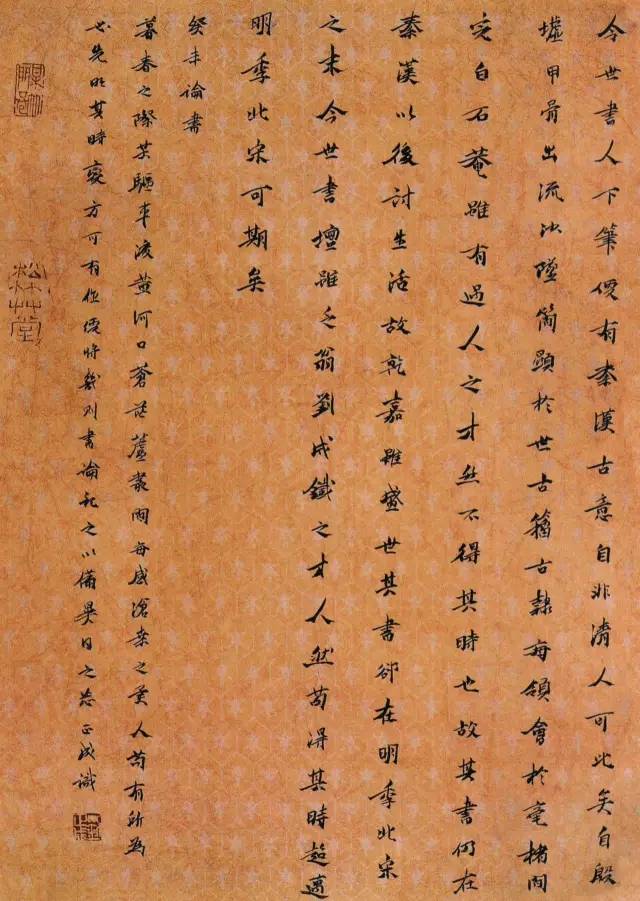 今世書人下筆便有秦漢古意自非清人可比矣自殷
墟甲骨出流沙墜簡顯於世古籀古隸每領會於毫楮間
完白石菴雖有過人之才然不得其時也故其書仍在
秦漢以後討生活故乾嘉雖盛世其書卻在明季北宋
之末今世書壇雖乏翁劉成鐵之才人然苟得其時超邁
明季北宋可期矣
癸未論書
暮春之際某驅車渡黃河口蒼茫蘆叢間每感滄桑之變人苟有所為
必先明其時變方可有作便將幾則書論記之以備異日之忘正成識
松竹草堂